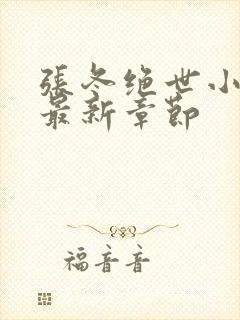 張冬绝世小
最新章節
福音音